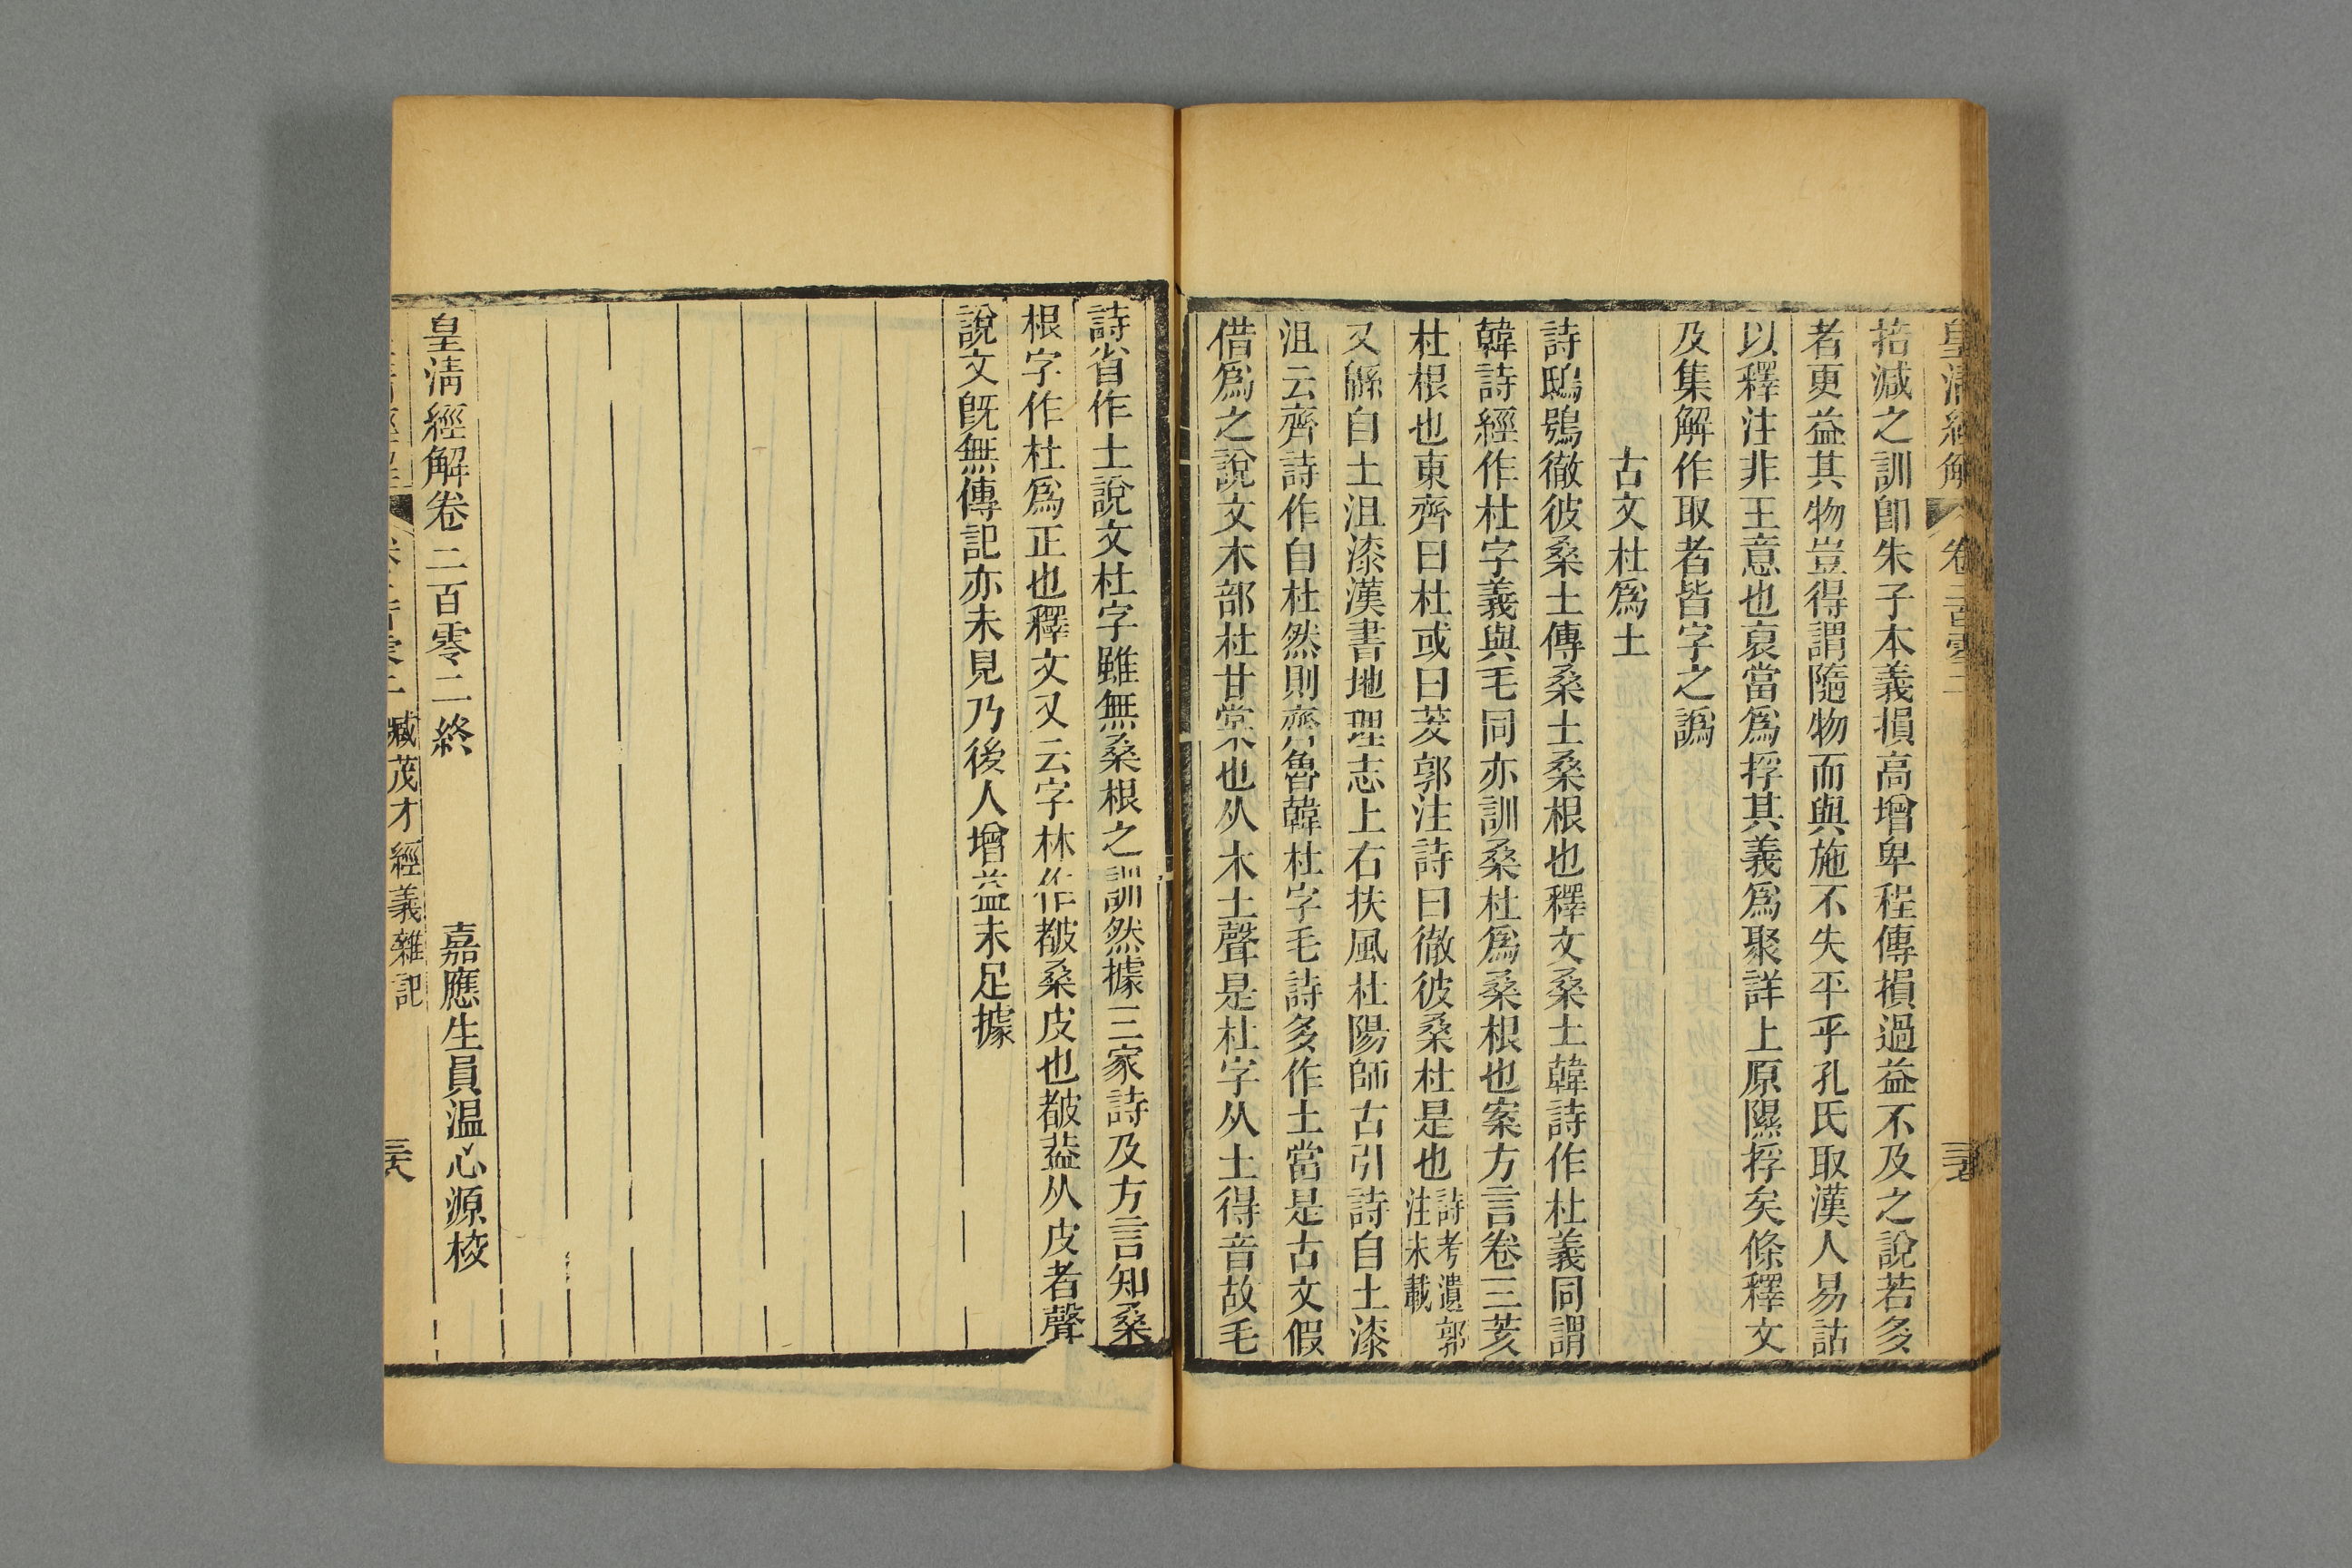 皇清經解 卷二百零二
掊減之訓卽朱子本義損高增卑程傳損過益不及之說若多
者更益其物豈得謂隨物而與施不失平乎孔氏取漢人易詁
以釋注非王意也裒當爲捊其義爲聚詳上原隰捊矣條釋文
及集解作取者皆字之譌
古文杜爲土
詩鴟鴞徹彼桑土傳桑土桑根也釋文桑土韓詩作杜義同謂
韓詩經作杜字義與毛同亦訓桑杜爲桑根也案方言卷三荄
杜根也東齊曰杜或曰茇郭注詩曰徹彼桑杜是也詩考遺郭注未載
又緜自土沮漆漢書地理志上右扶風杜陽師古引詩自土漆
沮云齊詩作自杜然則齊魯韓杜字毛詩多作土當是古文假
借爲之說文木部杜甘棠也从木土聲是杜字从土得音故毛
詩省作土說文杜字雖無桑根之訓然據三家詩及方言知桑
根字作杜爲正也釋文又云字林作𣀳桑皮也𣀳葢从皮者聲
說文旣無傳記亦未見乃後人增益未足據
皇淸經解卷二百零二終
嘉應生員温心源校
臧茂才經義雜記